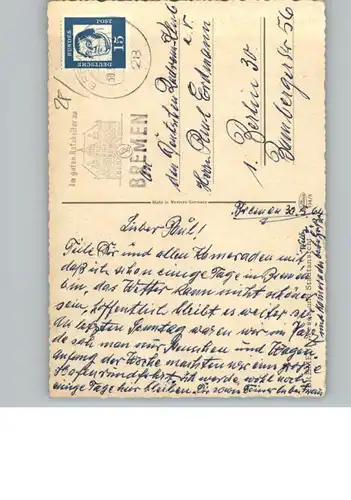 DEUTSCHE
BUNDES
POST
15
28
Im guten Ratskeller zu
BREMEN
An
den Deutschen
e.V.
Herrn Paul Erdmann
1 Berlin 30
Bamberger Str 56
Made in Western Germany
Bremen 30.
Lieber Paul!
Teile Dir und allen Kameraden mit
daß ich schon einige Tage in Bremen
bin, das Wetter kann nicht schöner
sein, hoffentlich bleibt es weiter so
letzten Sonntag waren wir im
da sah man nur Menschen und Wagen
anfang der Woche machten wir eine große
Hafenrundfahrt ich werde wohl noch
einige Tage hier bleiben.